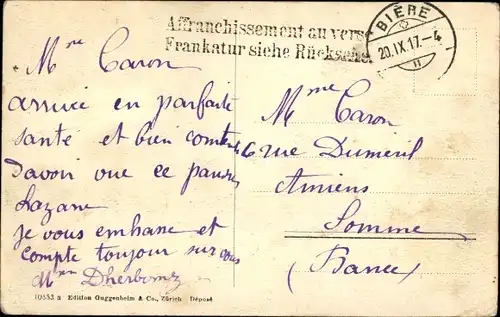 Affranchissement au verso
Frankatur siehe Rückseite
BIÈRE
20.IX.17.-4
Mme Caron
arrivée en parfaite
santé et bien contente
d'avoir vue ce pauvre
Lazare
je vous embrasse et
compte toujour sur vous
Dherbomez
Mme Caron
6 rue Dumeril
Amiens
Somme
(France)
10553 a Edition Guggenheim & Co., Zürich Déposé